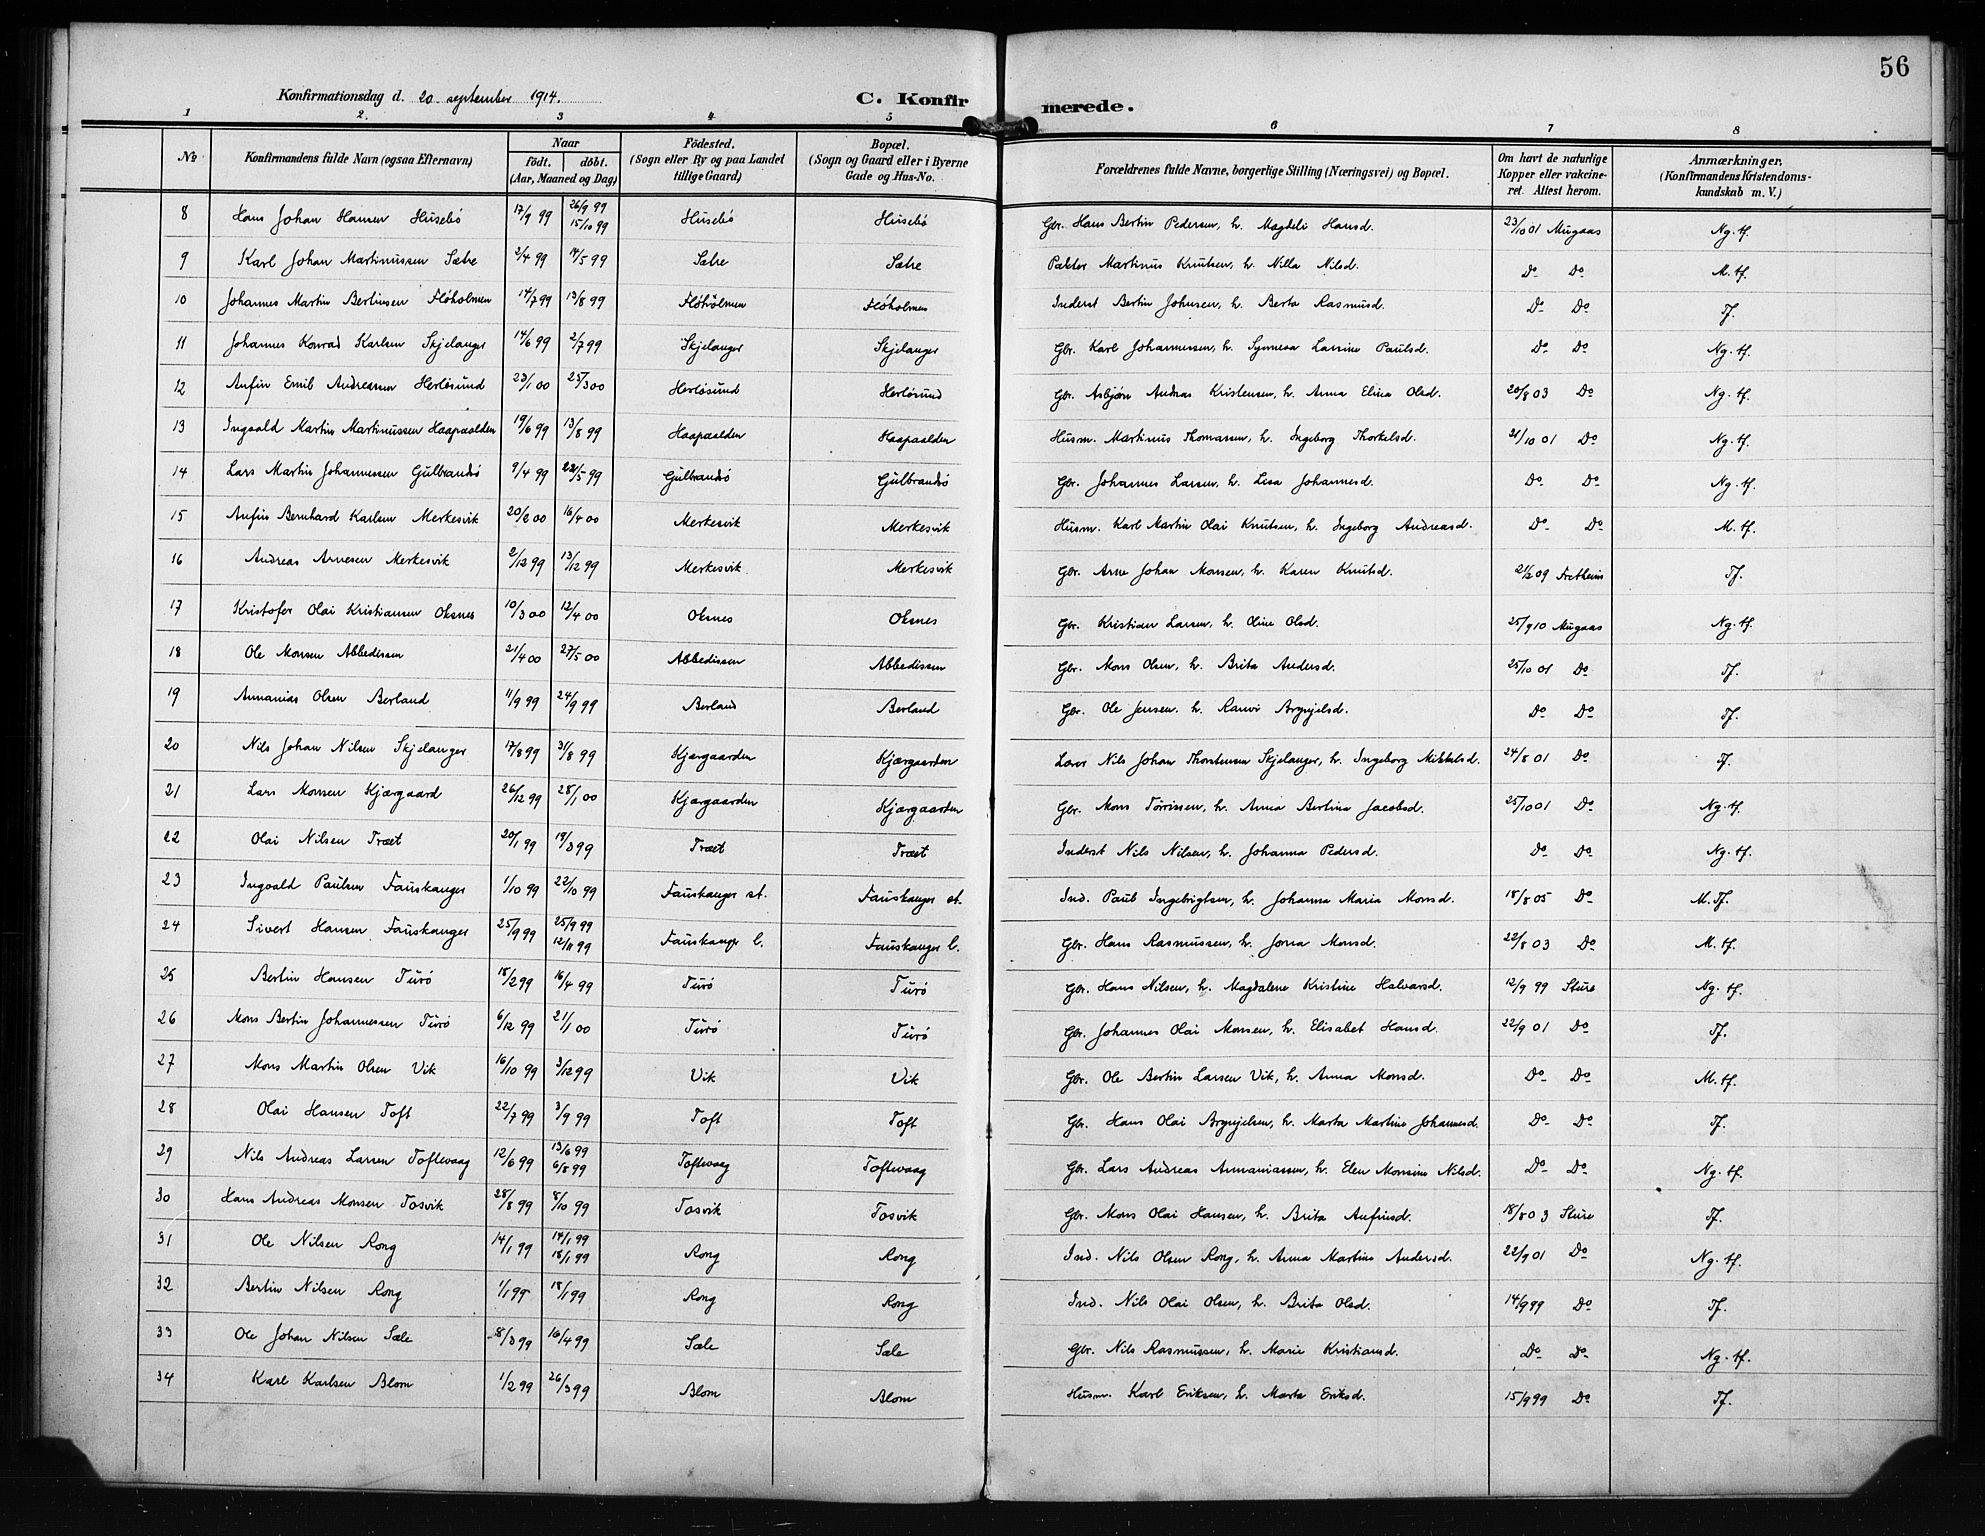 56
Konfirmationsdag d. 20. september 1914.
C. Konfirmerede.
1 2. 3 4 5 6 7 8
No Konfirmandens fulde Navn (ogsaa Efternavn) Naar født. døbt. (Aar, Maaned og Dag) Födested. (Sogn eller By og paa Landet tillige Gaard) Bopæl. (Sogn og Gaard eller i Byerne Gade og Hus-No. Forældrenes fulde Navne, borgerlige Stilling (Næringsvei) og Bopæl. Om havt de naturlige Kopper eller vakcineret. Attest herom. Anmærkninger. (Konfirmandens Kristendomskundskab m. V.)
8 Hans Johan Hansen Husebö 17/9 99 26/9 99 15/10 99 Husebö Husebö Gbr. Hans Bertin Pedersen, h. Magdeli Hansd. 23/10 01 Mugaas Ng. tf.
9 Karl Johan Martinussen Sætre 2/4 99 14/5 99 Sætre Sætre Pakter Martinus Knutsen, h. Nilla Nilsd. Do Do M. tf.
10 Johannes Martin Bertinsen Flöholmen 14/7 99 13/8 99 Flöholmen Flöholmen Inderst Bertin Johnsen, h. Berta Rasmusd. Do Do Tf.
11 Johannes Konrad Karlsen Skjelanger 14/6 99 2/7 99 Skjelanger Skjelanger Gbr. Karl Johannessen, h. Synneva Larsine Paulsd. Do Do Ng. tf.
12 Anfin Emil Andreassen Herlösund 23/1 00 25/3 00 Herlösund Herlösund Gbr. Asbjörn Andreas Kristensen, h. Anna Elina Olsd. 20/8 03 Do Ng. tf.
13 Ingvald Martin Martinussen Haapaalden 19/6 99 13/8 99 Haapaalden Haapaalden Husm. Martinus Thomassen, h. Ingeborg Thorkelsd. 21/10 01 Do Ng. tf.
14 Lars Martin Johannessen Gulbrandsö 9/4 99 22/5 99 Gulbrandsö Gulbrandsö Gbr. Johannes Larsen, h. Lisa Johannesd. Do Do Ng. tf.
15 Anfin Bernhard Karlsen Merkesvik 20/2 00 16/4 00 Merkesvik Merkesvik Husm. Karl Martin Olai Knutsen, h. Ingeborg Andreasd. Do Do M. tf.
16 Andreas Arnesen Merkesvik 2/12 99 13/12 99 Merkesvik Merkesvik Gbr. Arne Johan Monsen, h. Karen Knutsd. 21/2 09 Fretheim Tf.
17 Kristofer Olai Kristiansen Oksnes 10/3 00 12/4 00 Oksnes Oksnes Gbr. Kristian Larsen, h. Oline Olsd. 25/9 10 Mugaas Ng. tf.
18 Ole Monsen Abbedissen 21/4 00 27/5 00 Abbedissen Abbedissen Gbr. Mons Olsen, h. Brita Andersd. 25/10 01 Do Tf.
19 Annanias Olsen Berland 11/9 99 24/9 99 Berland Berland Gbr. Ole Jensen, h. Ranvi Brynjelsd. Do Do Tf.
20 Nils Johan Nilsen Skjelanger 17/8 99 31/8 99 Kjærgaarden Kjærgaarden Lærer Nils Johan Thorstensen Skjelanger, h. Ingeborg Mikkelsd. 24/8 01 Do Tf.
21 Lars Monsen Kjærgaard 26/12 99 28/1 00 Kjærgaarden Kjærgaarden Gbr. Mons Törrissen, h. Anna Bertina Jacobsd. 25/10 01 Do Ng. tf.
22 Olai Nilsen Træet 20/1 99 19/3 99 Træet Træet Inderst Nils Nilsen, h. Johanna Pedersd. Do Do Ng. tf.
23 Ingvald Paulsen Fauskanger 1/10 99 22/10 99 Fauskanger st. Fauskanger st. Ind. Paul Ingebrigtsen, h. Johanna Maria Monsd. 18/8 05 Do M. Tf.
24 Sivert Hansen Fauskanger 25/9 99 25/9 99 12/11 99 Fauskanger l. Fauskanger l. Gbr. Hans Rasmussen, h. Jona Monsd. 22/8 03 Do M. tf.
25 Bertin Hansen Turö 18/2 99 16/4 99 Turö Turö Gbr. Hans Nilsen, h. Magdalene Kristine Halvarsd. 12/9 99 Sture Ng. tf.
26 Mons Bertin Johannessen Turö 6/12 99 21/1 00 Turö Turö Gbr. Johannes Olai Monsen, h. Elisabet Hansd. 22/9 01 Do Tf.
27 Mons Martin Olsen Vik 16/10 99 3/12 99 Vik Vik Gbr. Ole Bertin Larsen Vik, h. Anna Monsd. Do Do M. tf.
28 Olai Hansen Toft 22/7 99 3/9 99 Toft Toft Gbr. Hans Olai Brynjelsen, h. Marta Martine Johannesd. Do Do Tf.
29 Nils Andreas Larsen Toftevaag 12/6 99 13/6 99 6/8 99 Toftevaag Toftevaag Gbr. Lars Andreas Annaniassen, h. Elen Monsine Nilsd. Do Do Ng. tf.
30 Hans Andreas Monsen Tosvik 28/8 99 8/10 99 Tosvik Tosvik Gbr. Mons Olai Hansen, h. Brita Anfinsd. 18/8 03 Sture Tf.
31 Ole Nilsen Rong 14/1 99 14/1 99 18/1 99 Rong Rong Ind. Nils Olsen Rong, h. Anna Martine Andersd. 22/9 01 Do Ng. tf.
32 Bertin Nilsen Rong 1/1 99 18/1 99 Rong Rong Ind. Nils Olai Olsen, h. Brita Olsd. 14/9 99 Do Tf.
33 Ole Johan Nilsen Sæle 8/3 99 16/4 99 Sæle Sæle Gbr. Nils Rasmussen, h. Marie Kristiansd. Do Do Ng. tf.
34 Karl Karlsen Blom 1/2 99 26/3 99 Blom Blom Husm. Karl Eriksen, h. Marta Eriksd. 15/9 99 Do Tf.